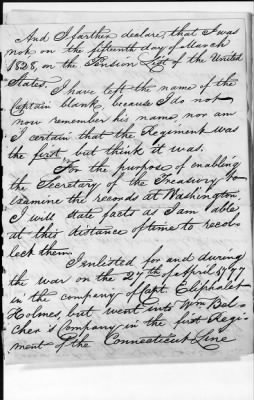 And I farther declare, that I was
not on the fifteenth day of March
1828, on the Pension List of the United
States.
I have left the name of the
Captain blank, because I do not
now remember his name, nor am
I certain that the Regiment was
the first but think it was.
For the purpose of enabling
the Secretary of the Treasury to
examine the records at Washington,
I will state facts as I am able
at this distance of time to recol-
lect them.
I enlisted for and during
the war on the 27th of April 1777
in the company of Capt. Eliphalet
Holmes, but went into Wm Bel-
cher's Company in the first Regi-
ment of the Connecticut Line